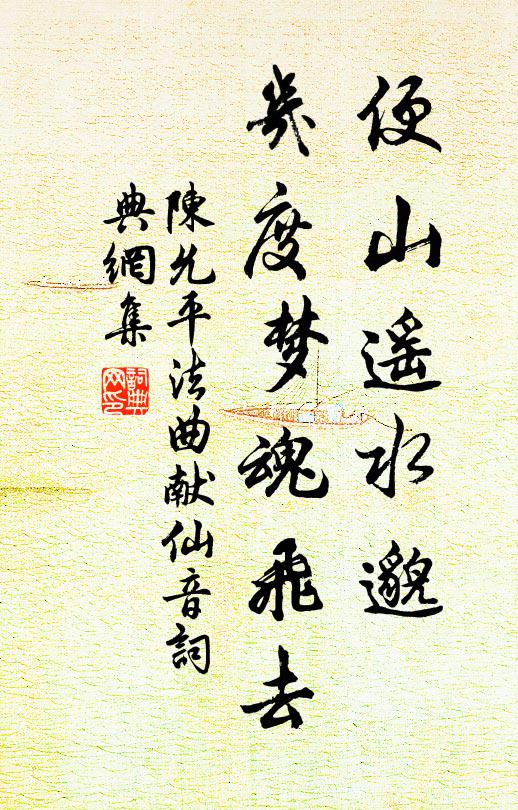 便山遥水邈
幾度梦魂飛去
陳允平法曲献仙音詞
典網集
詞典
网印